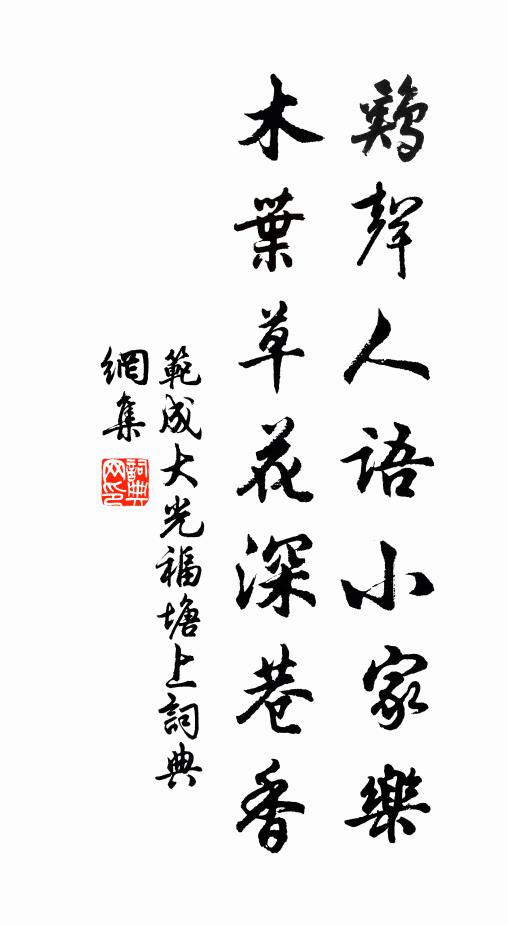 鷄聲人語小家樂
木葉草花深巷香
範成大光福塘上詞典
網集
詞典网印